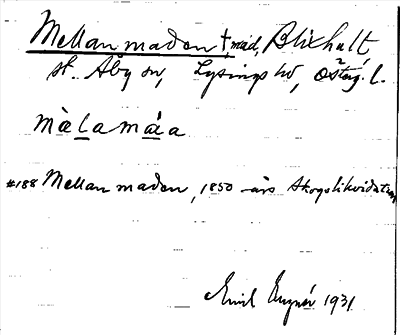 Mellanmaden †, mad, Blixhult
st. Åby sn, Lysings hd, Östergl.
mæ̀lamáa
#188 Mellanmaden, 1850 års Skogslikvidation
Emil 1931